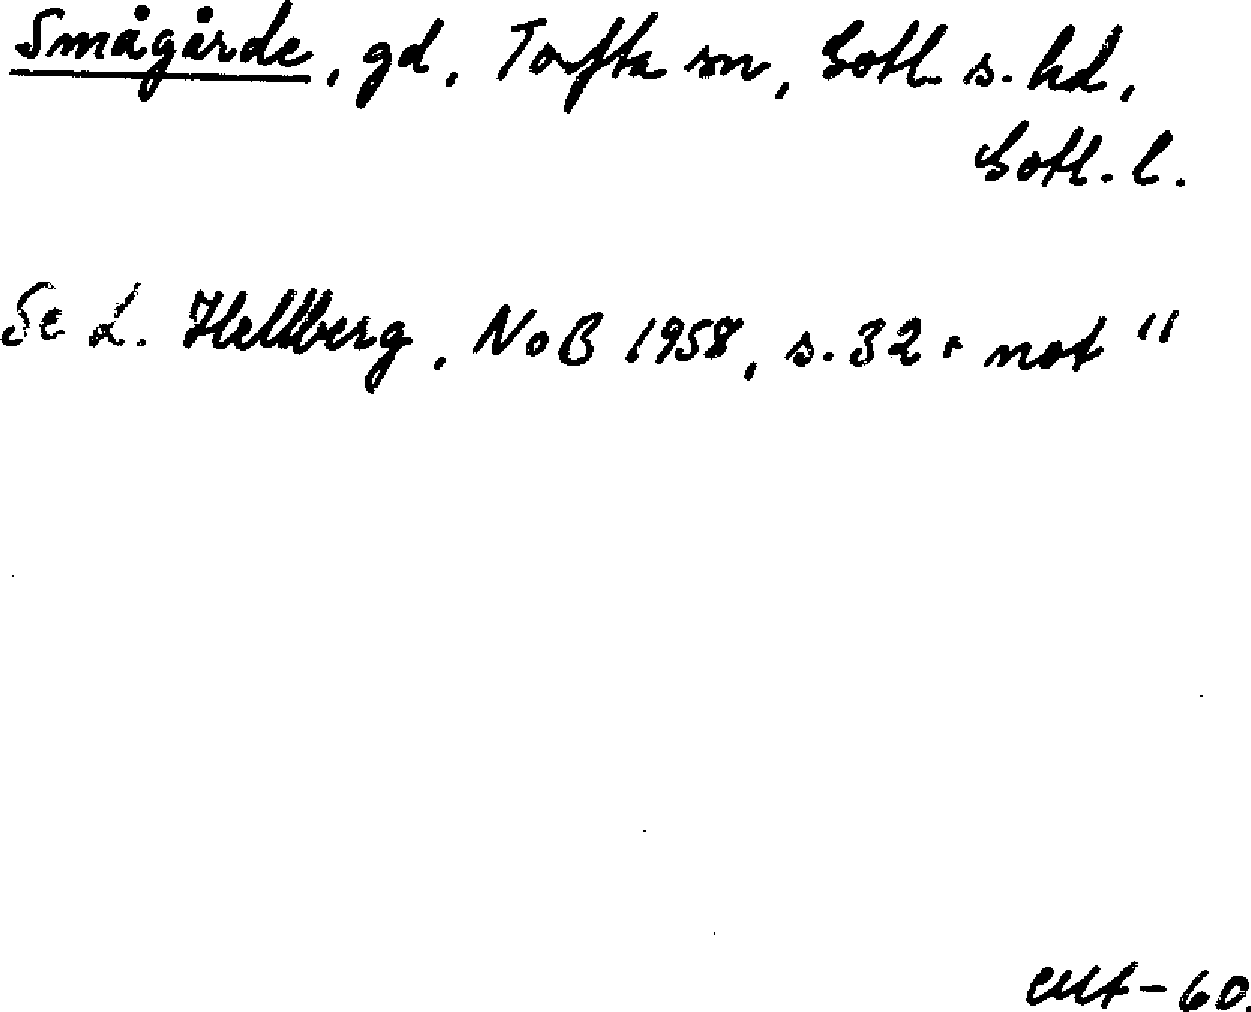 Smågårde, gd, Tofta sn, Gotl. s. hd,
Gotl. l.
Se L. Hellberg, NoB 1958, s. 32 + not "
-60.